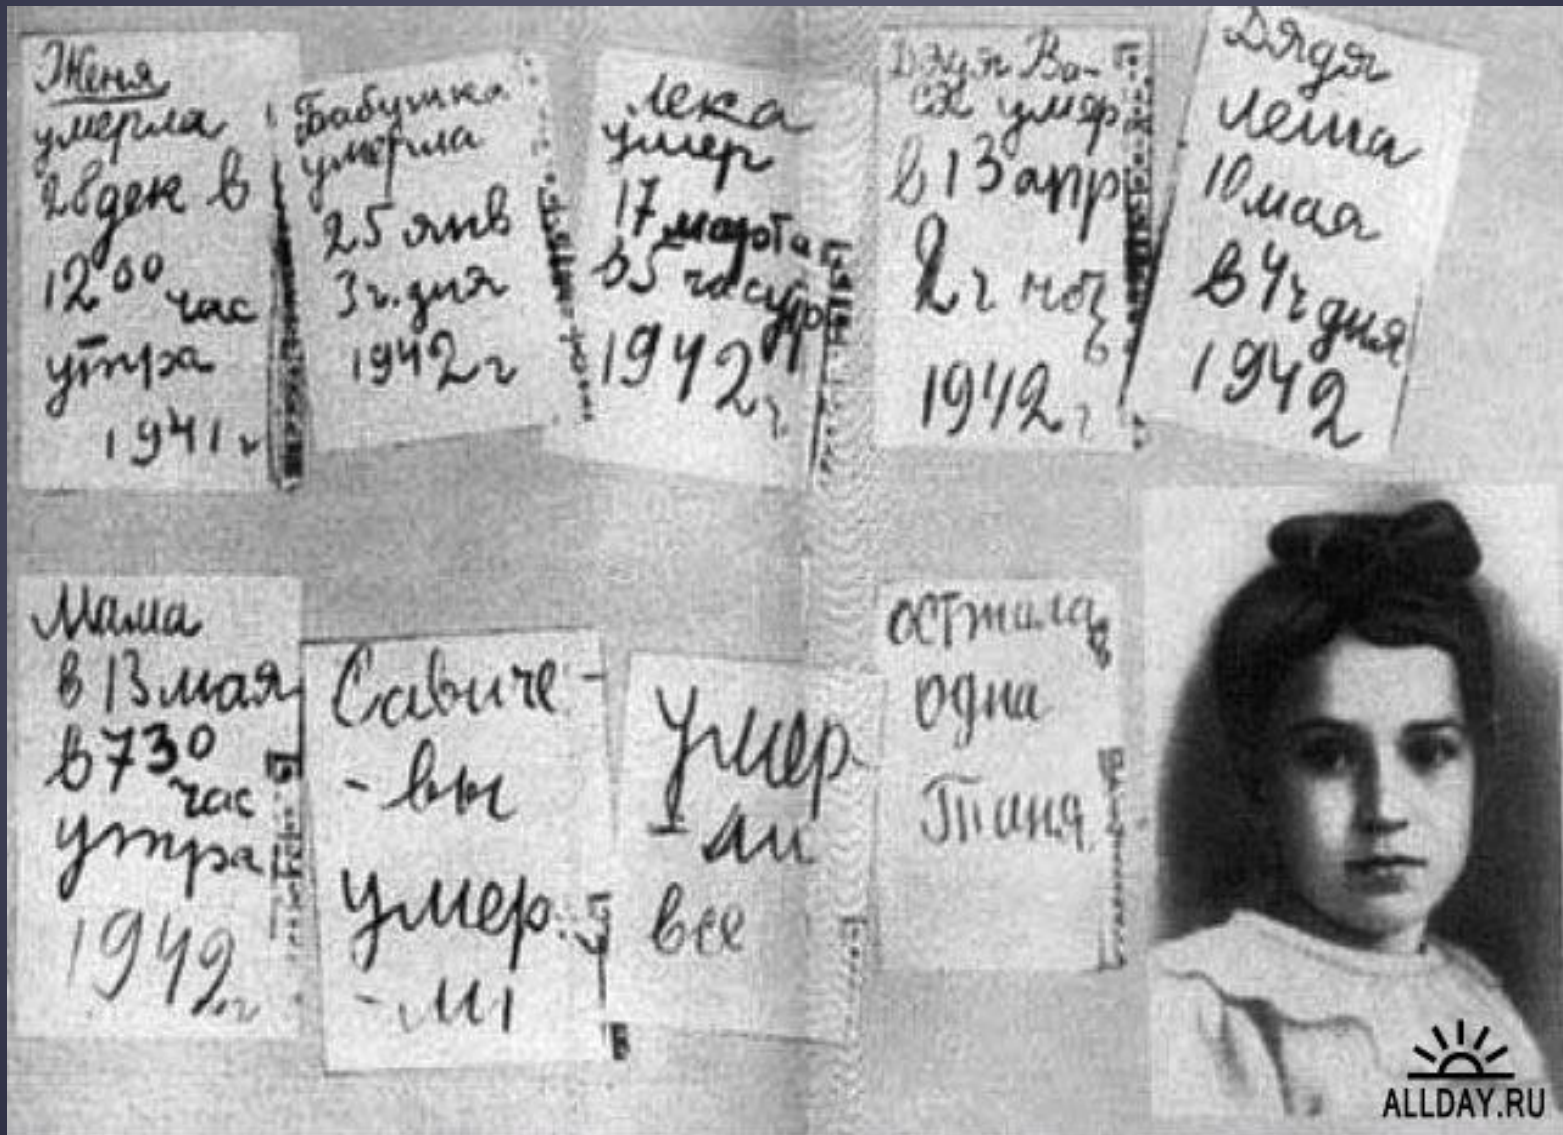 Женя
умерла
28 дек в
12 00 час
утра
1941 г
Бабушка
умерла
25 янв
3 ч. дня
1942 г
Лека
умер
17 марта
в 5 час утр
1942 г
Дядя Ва-
ся умер
в 13 апр
2 ч ноч
ь
1942 г
Дядя
Леша
10 мая
в 4 ч дня
1942
Мама
в 13 мая
в 7 30
час
утра
1942 г
Савиче-
-вы
умер
-ли
умер
-ли
все
осталась
одна
Таня
ALLDAY.RU